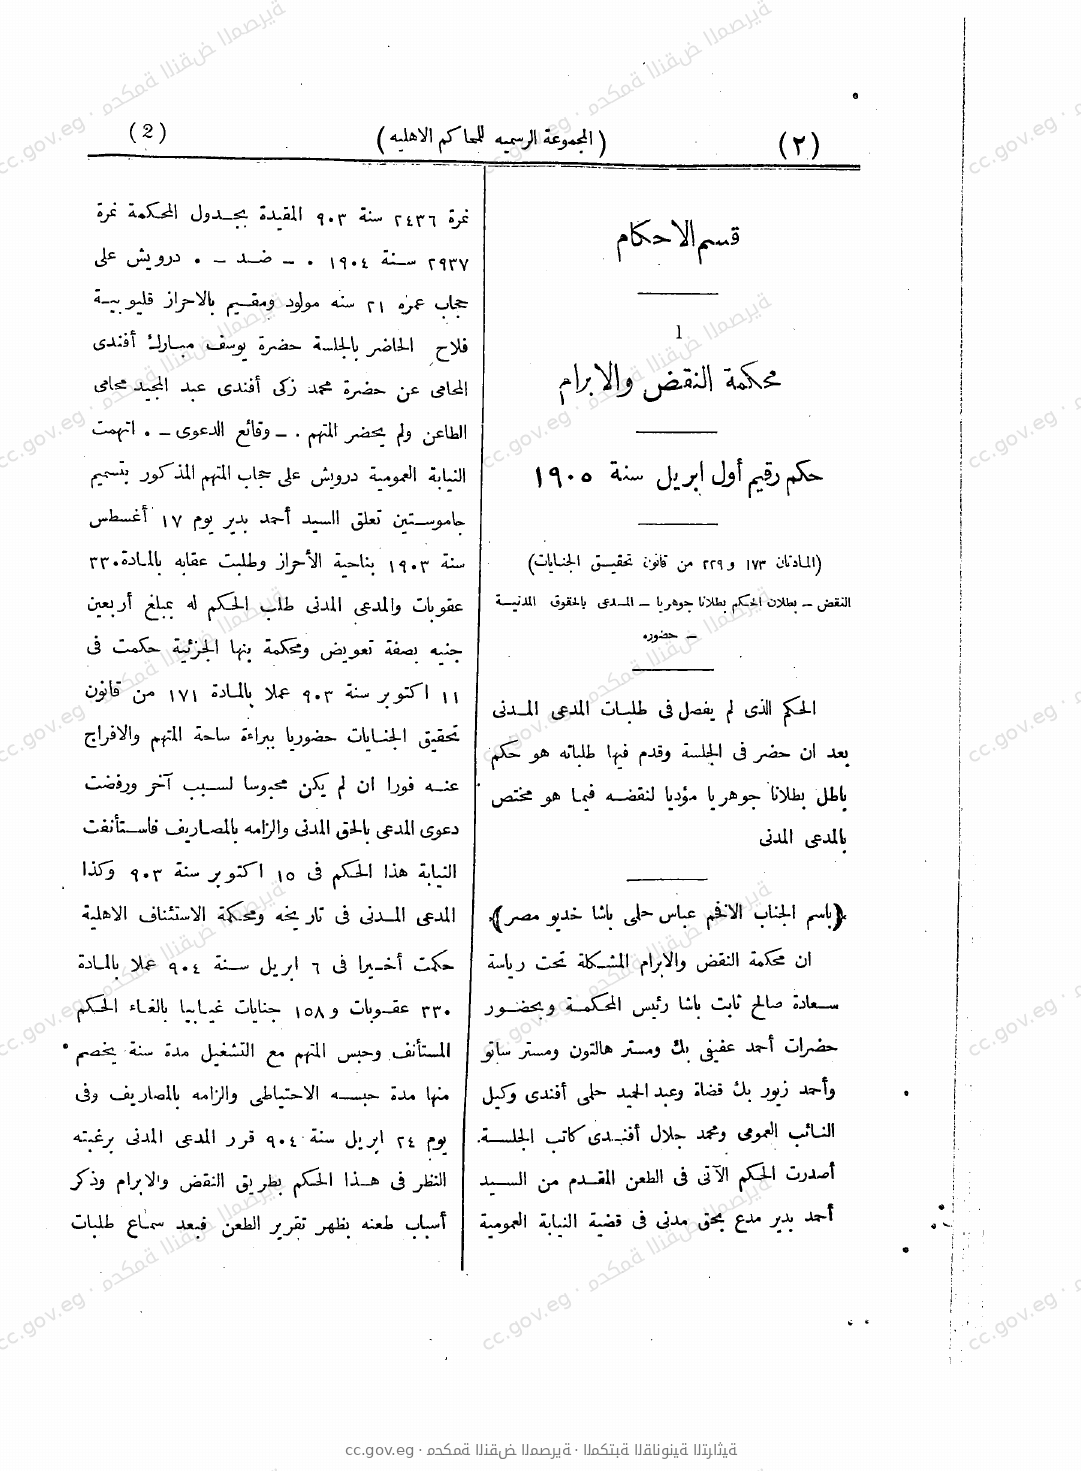 (٢)
(المجموعة الرسميه للمحاكم الاهليه)
(2)
قسم الاحكام
1
محكمة النقض والابرام
حكم رقيم أول ابريل سنة ١٩٠٥
(المادتان ١٧٣ و٢٢٩ من قانون تحقيق الجنايات)
النقض – بطلان الحكم بطلانا جوهريا – المدعى بالحقوق المدنية
– حضوره
الحكم الذى لم يفصل فى طلبات المدعى المدنى
بعد ان حضر فى الجلسة وقدم فيها طلباته هو حكم
باطل بطلانا جوهريا مؤديا لنقضه فيما هو مختص
بالمدعى المدنى
(باسم الجناب الافخم عباس حلمى باشا خديو مصر)
ان محكمة النقض والابرام المشكلة تحت رياسة
سعادة صالح ثابت باشا رئيس المحكمة وبحضور
حضرات أحمد عفيفى بك ومستر هالتون ومستر ساتو
وأحمد زيور بك قضاة وعبد الحميد حلمى أفندى وكيل
النائب العمومى ومحمد جلال أفندى كاتب الجلسة.
أصدرت الحكم الآتى فى الطعن المقدم من السيد
أحمد بدير مدع بحق مدنى فى قضية النيابة العمومية
نمرة ٢٤٣٦ سنة ٩٠٣ المقيدة بجدول المحكمة نمرة
٢٩٣٧ سنة ١٩٠٤ . – ضد – . درويش على
حجاب عمره ٢١ سنه مولود ومقيم بالاحراز قليوبية
فلاح الحاضر بالجلسة حضرة يوسف مبارك أفندى
المحامى عن حضرة محمد زكى أفندى عبد المجيد محامى
الطاعن ولم يحضر المتهم . – وقائع الدعوى – . اتهمت
النيابة العمومية درويش على حجاب المتهم المذكور بتسميم
جاموستين تعلق السيد أحمد بدير يوم ١٧ أغسطس
سنة ١٩٠٣ بناحية الأحراز وطلبت عقابه بالمادة ٣٣٠
عقوبات والمدعى المدنى طلب الحكم له بمبلغ أربعين
جنيه بصفة تعويض ومحكمة بنها الجزئية حكمت فى
١١ اكتوبر سنة ٩٠٣ عملا بالمادة ١٧١ من قانون
تحقيق الجنايات حضوريا ببراءة ساحة المتهم والافراج
عنه فورا ان لم يكن محبوسا لسبب آخر ورفضت
دعوى المدعى بالحق المدنى والزامه بالمصاريف فاستأنفت
النيابة هذا الحكم فى ١٥ اكتوبر سنة ٩٠٣ وكذا
المدعى المدنى فى تاريخه ومحكمة الاستئناف الاهلية
حكمت أخيرا فى ٦ ابريل سنة ٩٠٤ عملا بالمادة
٣٣٠ عقوبات و١٥٨ جنايات غيابيا بالغاء الحكم
المستأنف وحبس المتهم مع التشغيل مدة سنة يخصم
منها مدة حبسه الاحتياطى والزامه بالمصاريف وفى
يوم ٢٤ ابريل سنة ٩٠٤ قرر المدعى المدنى برغبته
النظر فى هذا الحكم بطريق النقض والابرام وذكر
أسباب طعنه بظهر تقرير الطعن فبعد سماع طلبات
cc.gov.eg · محكمة النقض المصرية · المكتبة القانونية التراثية